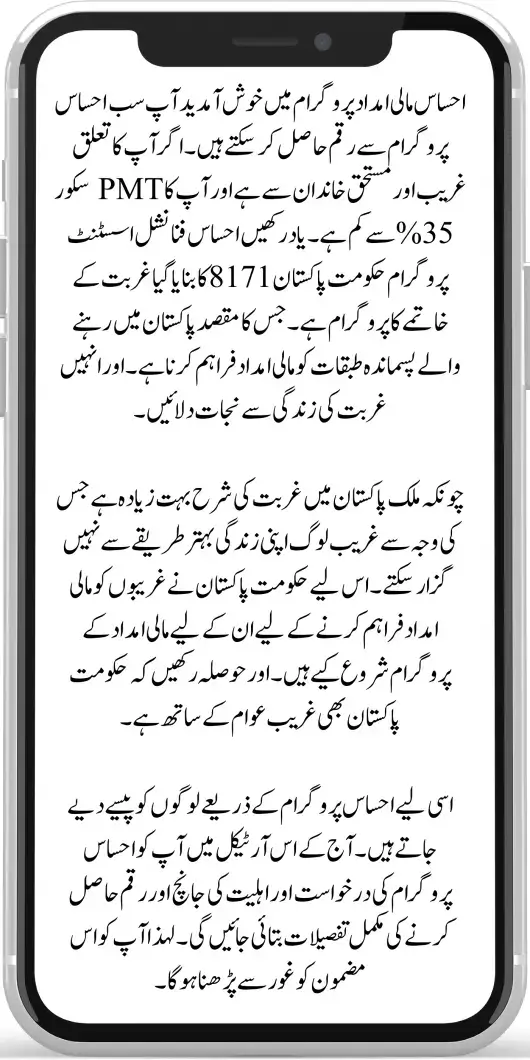 احساس مالی امداد پروگرام میں خوش آمدید آپ سب احساس
پروگرام سے رقم حاصل کر سکتے ہیں۔ اگر آپ کا تعلق
غریب اور مستحق خاندان سے ہے اور آپ کا PMT سکور
35% سے کم ہے۔ یاد رکھیں احساس فنانشل اسسٹنٹ
پروگرام حکومت پاکستان 8171 کا بنایا گیا غربت کے
خاتمے کا پروگرام ہے۔ جس کا مقصد پاکستان میں رہنے
والے پسماندہ طبقات کو مالی امداد فراہم کرنا ہے۔ اور انہیں
غربت کی زندگی سے نجات دلائیں۔
چونکہ ملک پاکستان میں غربت کی شرح بہت زیادہ ہے جس
کی وجہ سے غریب لوگ اپنی زندگی بہتر طریقے سے نہیں
گزار سکتے۔ اس لیے حکومت پاکستان نے غریبوں کو مالی
امداد فراہم کرنے کے لیے ان کے لیے مالی امداد کے
پروگرام شروع کیے ہیں۔ اور حوصلہ رکھیں کہ حکومت
پاکستان بھی غریب عوام کے ساتھ ہے۔
اسی لیے احساس پروگرام کے ذریعے لوگوں کو پیسے دیے
جاتے ہیں۔ آج کے اس آرٹیکل میں آپ کو احساس
پروگرام کی درخواست اور اہلیت کی جانچ اور رقم حاصل
کرنے کی مکمل تفصیلات بتائی جائیں گی۔ لہذا آپ کو اس
مضمون کو غور سے پڑھنا ہو گا۔